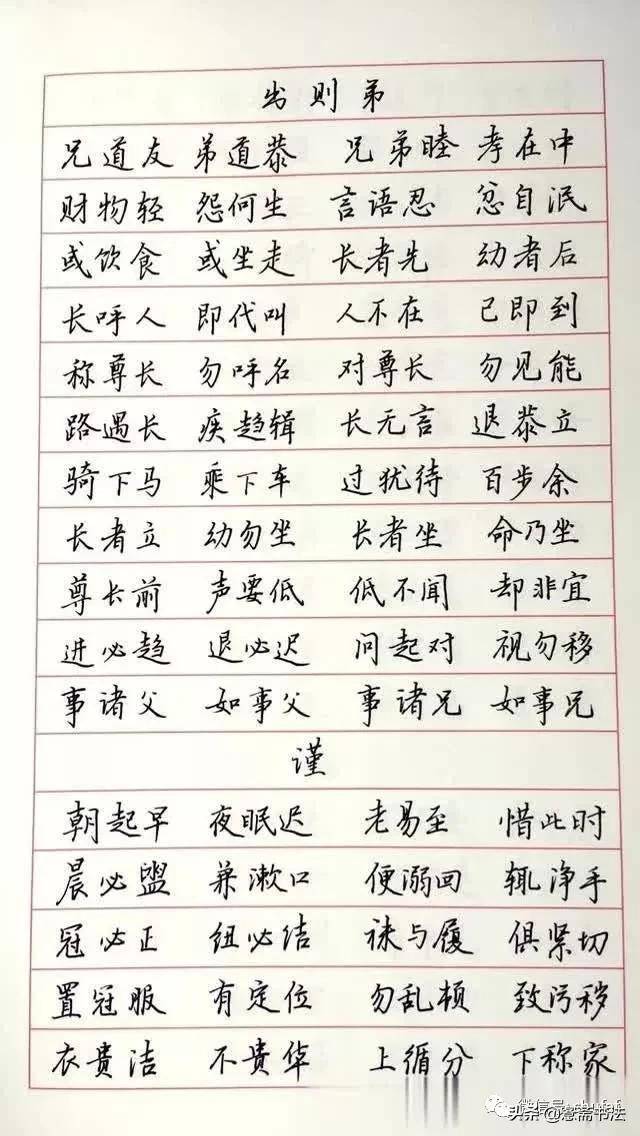 出则弟
兄道友 弟道恭 兄弟睦 孝在中
财物轻 怨何生 言语忍 忿自泯
或饮食 或坐走 长者先 幼者后
长呼人 即代叫 人不在 己即到
称尊长 勿呼名 对尊长 勿见能
路遇长 疾趋辑 长无言 退恭立
骑下马 乘下车 过犹待 百步余
长者立 幼勿坐 长者坐 命乃坐
尊长前 声要低 低不闻 却非宜
进必趋 退必迟 问起对 视勿移
事诸父 如事父 事诸兄 如事兄
谨
朝起早 夜眠迟 老易至 惜此时
晨必盥 兼漱口 便溺回 辄净手
冠必正 纽必结 袜与履 俱紧切
置冠服 有定位 勿乱顿 致污秽
衣贵洁 不贵华 上循分 下称家
微信号
头条 @悫斋书法